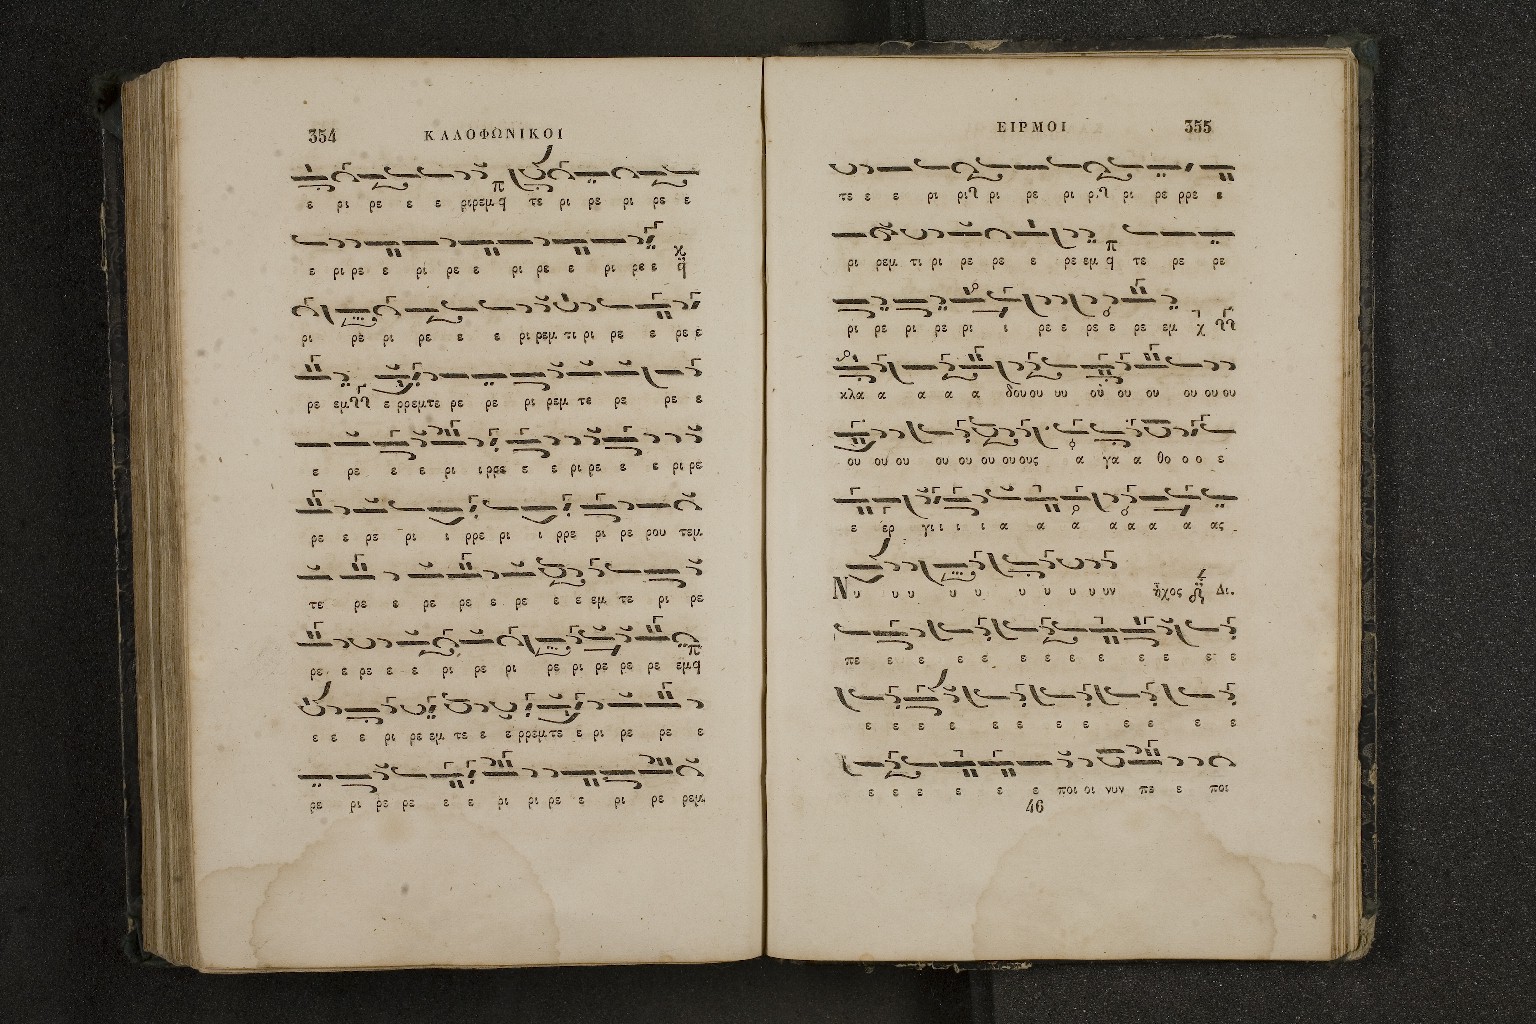 354 ΚΑΛΟΦΩΝΙΚΟΙ
ε ρι ρε ε ε ριρεμ τε ρι ρε ρι ρε ε
ε ρι ρε ε ρι ρε ε ρι ρε ε ρι ρε ε
ρι ρε ρι ρε ε ε ρι ρεμ τι ρι ρε ε ρε ε
ρε εμ ε ρρεμτε ρε ρε ρι ρεμ τε ρε ρε ε
ε ρε ε ε ρι ι ρρε ε ε ρι ρε ε ε ρι ρε
ρε ε ρε ρι ι ρρε ρι ι ρρε ρι ρε ρου τεμ
τε ρε ε ρε ρε ε ρε ε ε εμ τε ρι ρε
ρε ε ρε ε ε ρι ρε ρι ρε ρι ρε ρε ρε εμ
ε ε ε ρι ρε εμ τε ε ε ρρεμτε ε ρι ρε ρε ε
ρε ρι ρε ρε ε ε ρι ρι ρε ε ρι ρε ρεμ
ΕΙΡΜΟΙ 355
τε ε ε ρι ρι ρι ρε ρι ρι ρι ρε ρρε ε
ρι ρεμ τι ρι ρε ρε ε ρε εμ τε ρε ρε
ρι ρε ρι ρε ρι ι ρε ε ρε ε ρε εμ
κλα α α α α δου ου υυ ου ου ου ου ου ου
ου ου ου ου ου ου ου ους α γα α θο ο ο ε
ε ερ γι ι ι ι α α α α α α α ας
Νυ υ υ υ υ υ υ υ υ υν ἦχος Δι.
πε ε ε ε ε ε ε ε ε ε ε ε ε
ε ε ε ε ε ε ε ε ε ε ε ε
ε ε ε ε ε ε ποι οι νυν πε ε ποι
46